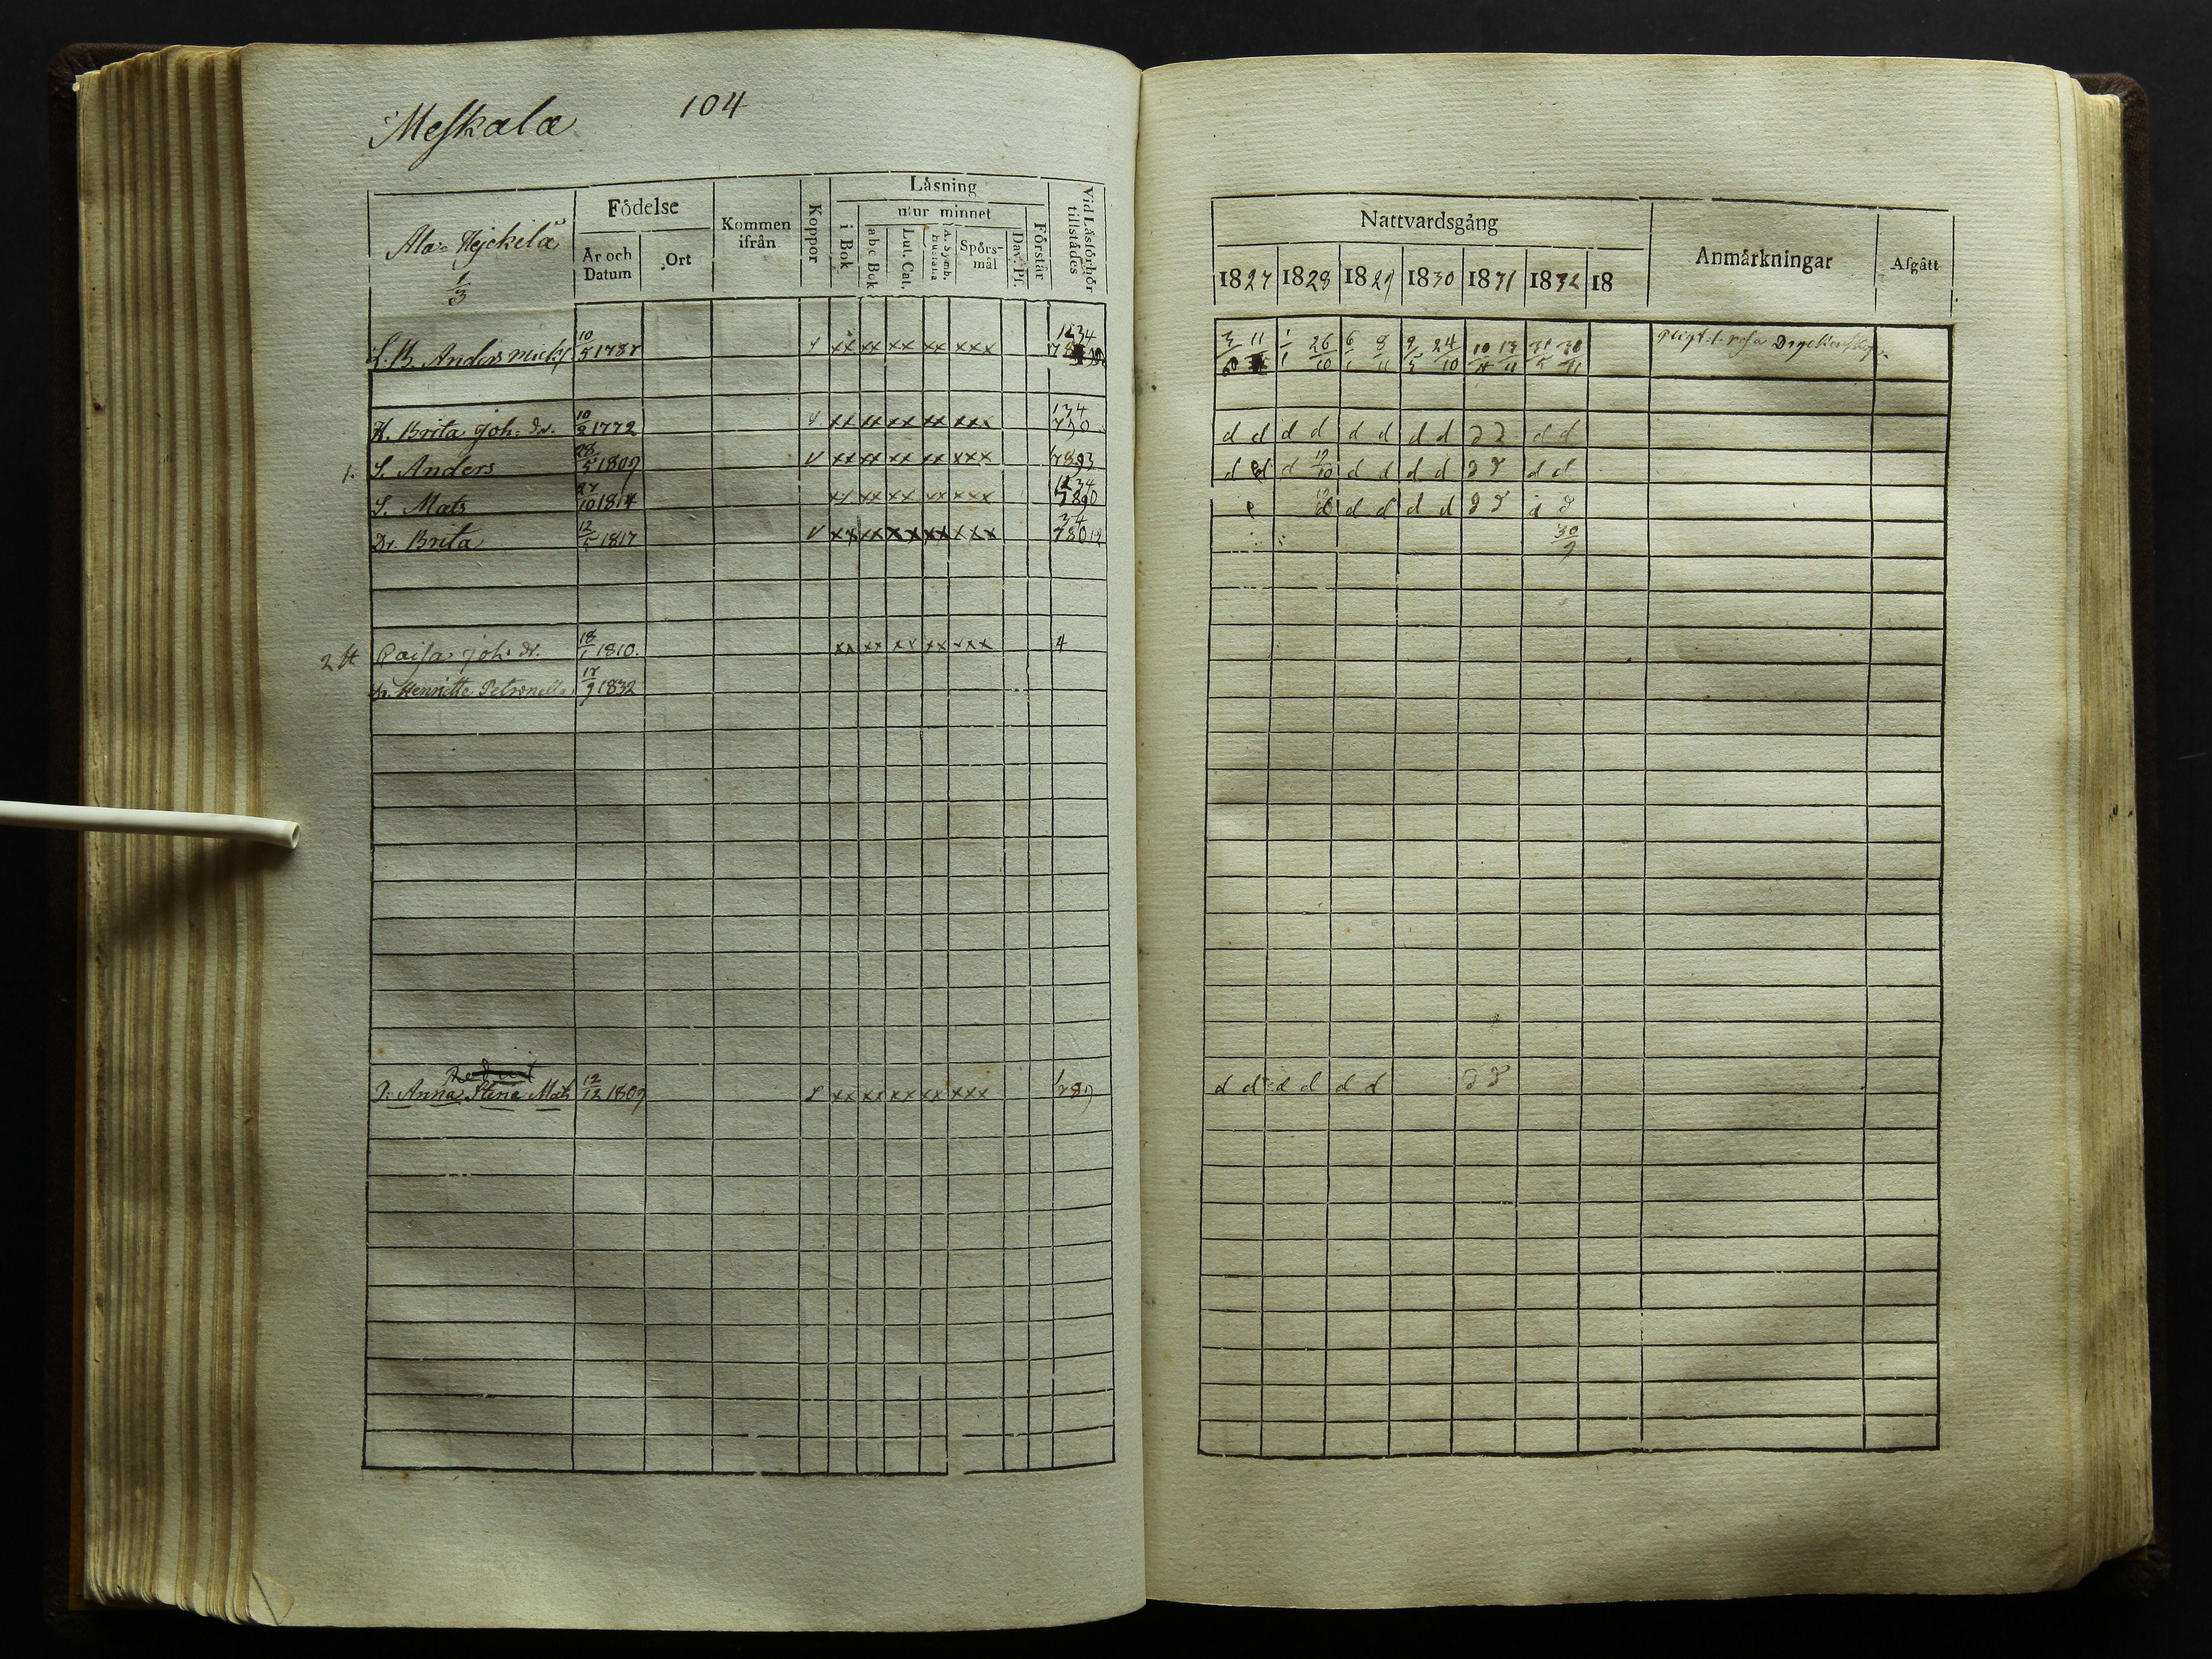 Meskala 104
Ala-Hejckilä
1/3
Födelse
År och Datum
Ort
Kommen ifrån
Koppor
Läsning
i Bok
utur minnet
abc Bok
Lut. Cat.
A. Symb.
Spörs-mål
Dav. Pſ.
Förstår
Vid Läsförhör tillstädes
L. B. Anders 10/5 1787 xx xx xx xx xxx 1234
H. Brita Joh: dr. 10/2 1772 xx xx xx xx xxx 134 730
1. S. Anders 28/5 1809 V xx xx xx xx xxx 7893
S. Mats 27/10 1814 xx xx xx xx xxx 1234 7890
Dr. Brita 12/5 1817 V xx xx xx xx xxx 34 78012
Caisa Joh. dr. 18/1 1810. xx xx xx xx xxx 4
Dr. Henriette Petronella 17/9 1832
P. Anna Stina Mats 12/12 1809 xx xx xx xx xxx 1789
Nattvardsgång
Anmärkningar
Afgått
1827 1828 1829 1830 1831 1832 18
1/1 26/10 6/1 8/11 9/5 24/10 10/4 13/11 31/5
d d d d d d d d d d d d
d d d 12/10 d d d d d d d d
d d d d d d d d d
30/9
d d d d d d d d